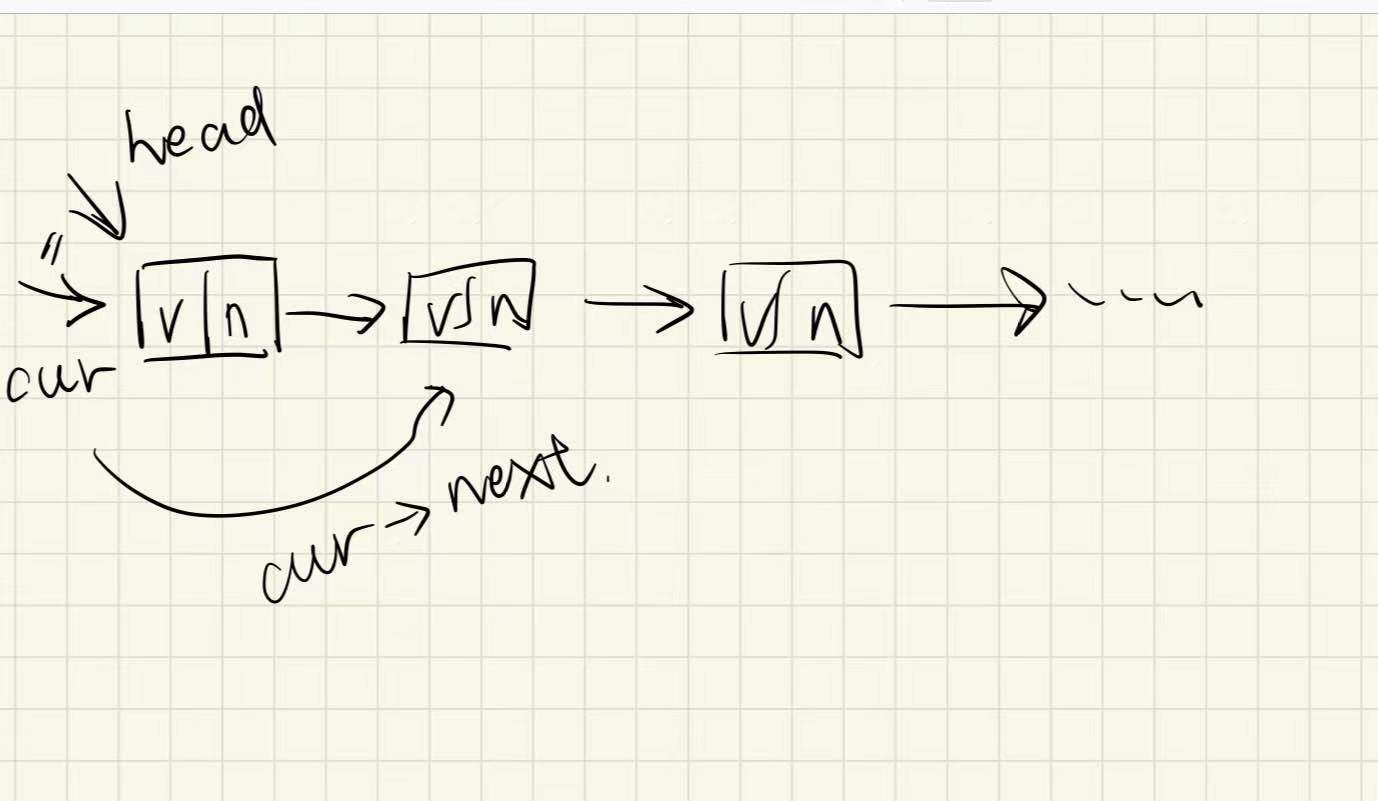 head
"
cur
v n → v n → v n → ---
cur → next.